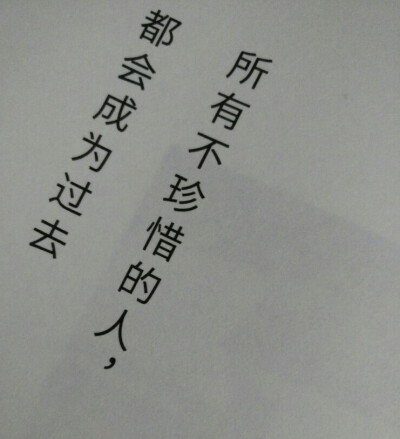 所有不珍惜的人，
都会成为过去